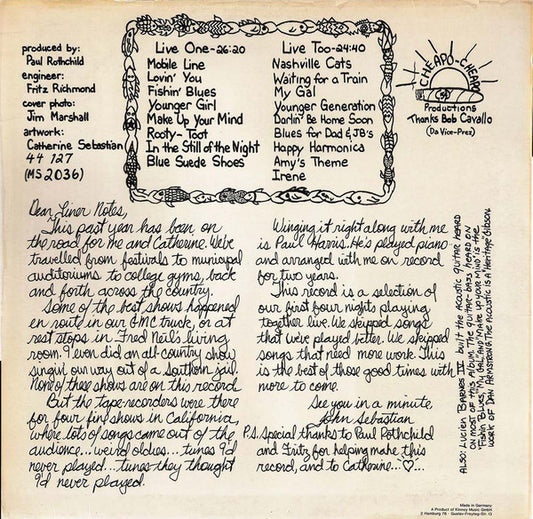 produced by:
Paul Rothchild
engineer:
Fritz Richmond
cover photo:
Jim Marshall
artwork:
Catherine Sebastian
44 127
(MS 2036)
Live One-26:20
Mobile Line
Lovin' You
Fishin' Blues
Younger Girl
Make Up Your Mind
Rooty-Toot
In the Still of the Night
Blue Suede Shoes
Live Too-24:40
Nashville Cats
Waiting for a Train
My Gal
Younger Generation
Darlin' Be Home Soon
Blues for Dad & JB's
Happy Harmonica
Amy's Theme
Irene
CHEAPO-CHEAPO
Productions
Thanks Bob Cavallo
(Da Vice-Prez)
Dear Liner Notes,
This past year has been on
the road for me and Catherine. We've
travelled from festivals to municipal
auditoriums to college gyms, back
and forth across the country.
Some of the best shows happened
en route in our GMC truck, or at
rest stops in Fred Neil's living
room. I even did an all-country show
singin' our way out of a Southern jail.
None of these shows are on this record.
But the tape-recorders were there
for four fine shows in California,
where lots of songs came out of the
audience...weird oldies...tunes I'd
never played...tunes they thought
I'd never played.
Winging it right along with me
is Paul Harris. He's played piano
and arranged with me on record
for two years.
This record is a selection of
our first four nights playing
together live. We skipped songs
that we've played better. We skipped
songs that need more work. This
is the best of those good times with
more to come.
See you in a minute
John Sebastian
P.S. Special thanks to Paul Rothchild
and Fritz for helping make this
record, and to Catherine...♡...
ALSO: LUCIEN BARNES IV built the acoustic guitar heard
on most of this album. The guitar-bass heard on
"Fishin' Blues," "My Gal," and "Make Up Your Mind" is the
work of Dan Armstrong. The acoustic is a Heritage Gibson.
Made in Germany
A Product of Kinney Music GmbH
2 Hamburg 76 · Gustav-Freytag-Str. 13